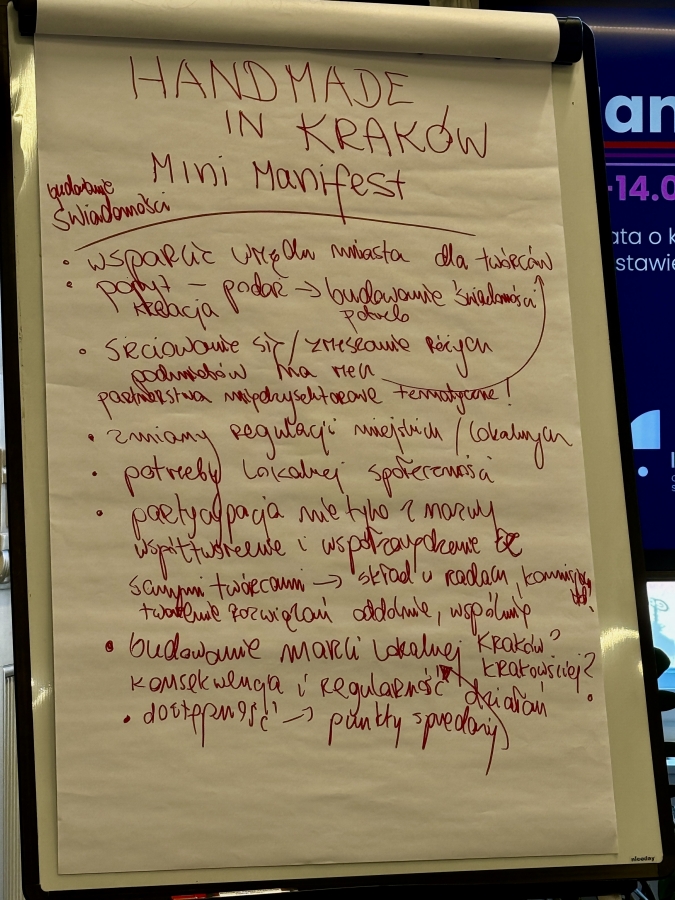 HANDMADE
IN KRAKÓW
Mini Manifest
budowanie
świadomości
• wsparcie urzędu miasta dla twórców
• popyt – podaż → budowanie świadomości
kreacja potrzeb
• sieciowanie się / zrzeszanie różnych
podmiotów na rzecz
partnerstwa międzysektorowe tematyczne!
• zmiany regulacji miejskich / lokalnych
• potrzeby lokalnej społeczności
• partycypacja nie tylko z nazwy
współtworzenie i współzarządzanie ze
samymi twórcami → skład w radach, komisjach
itd!
tworzenie rozwiązań oddolnie, wspólnie
• budowanie marki lokalnej Kraków?
krakowskiej?
konsekwencja i regularność działań
• dostępność → punkty sprzedaży
an
-14.0
ata o k
stawie
niceday